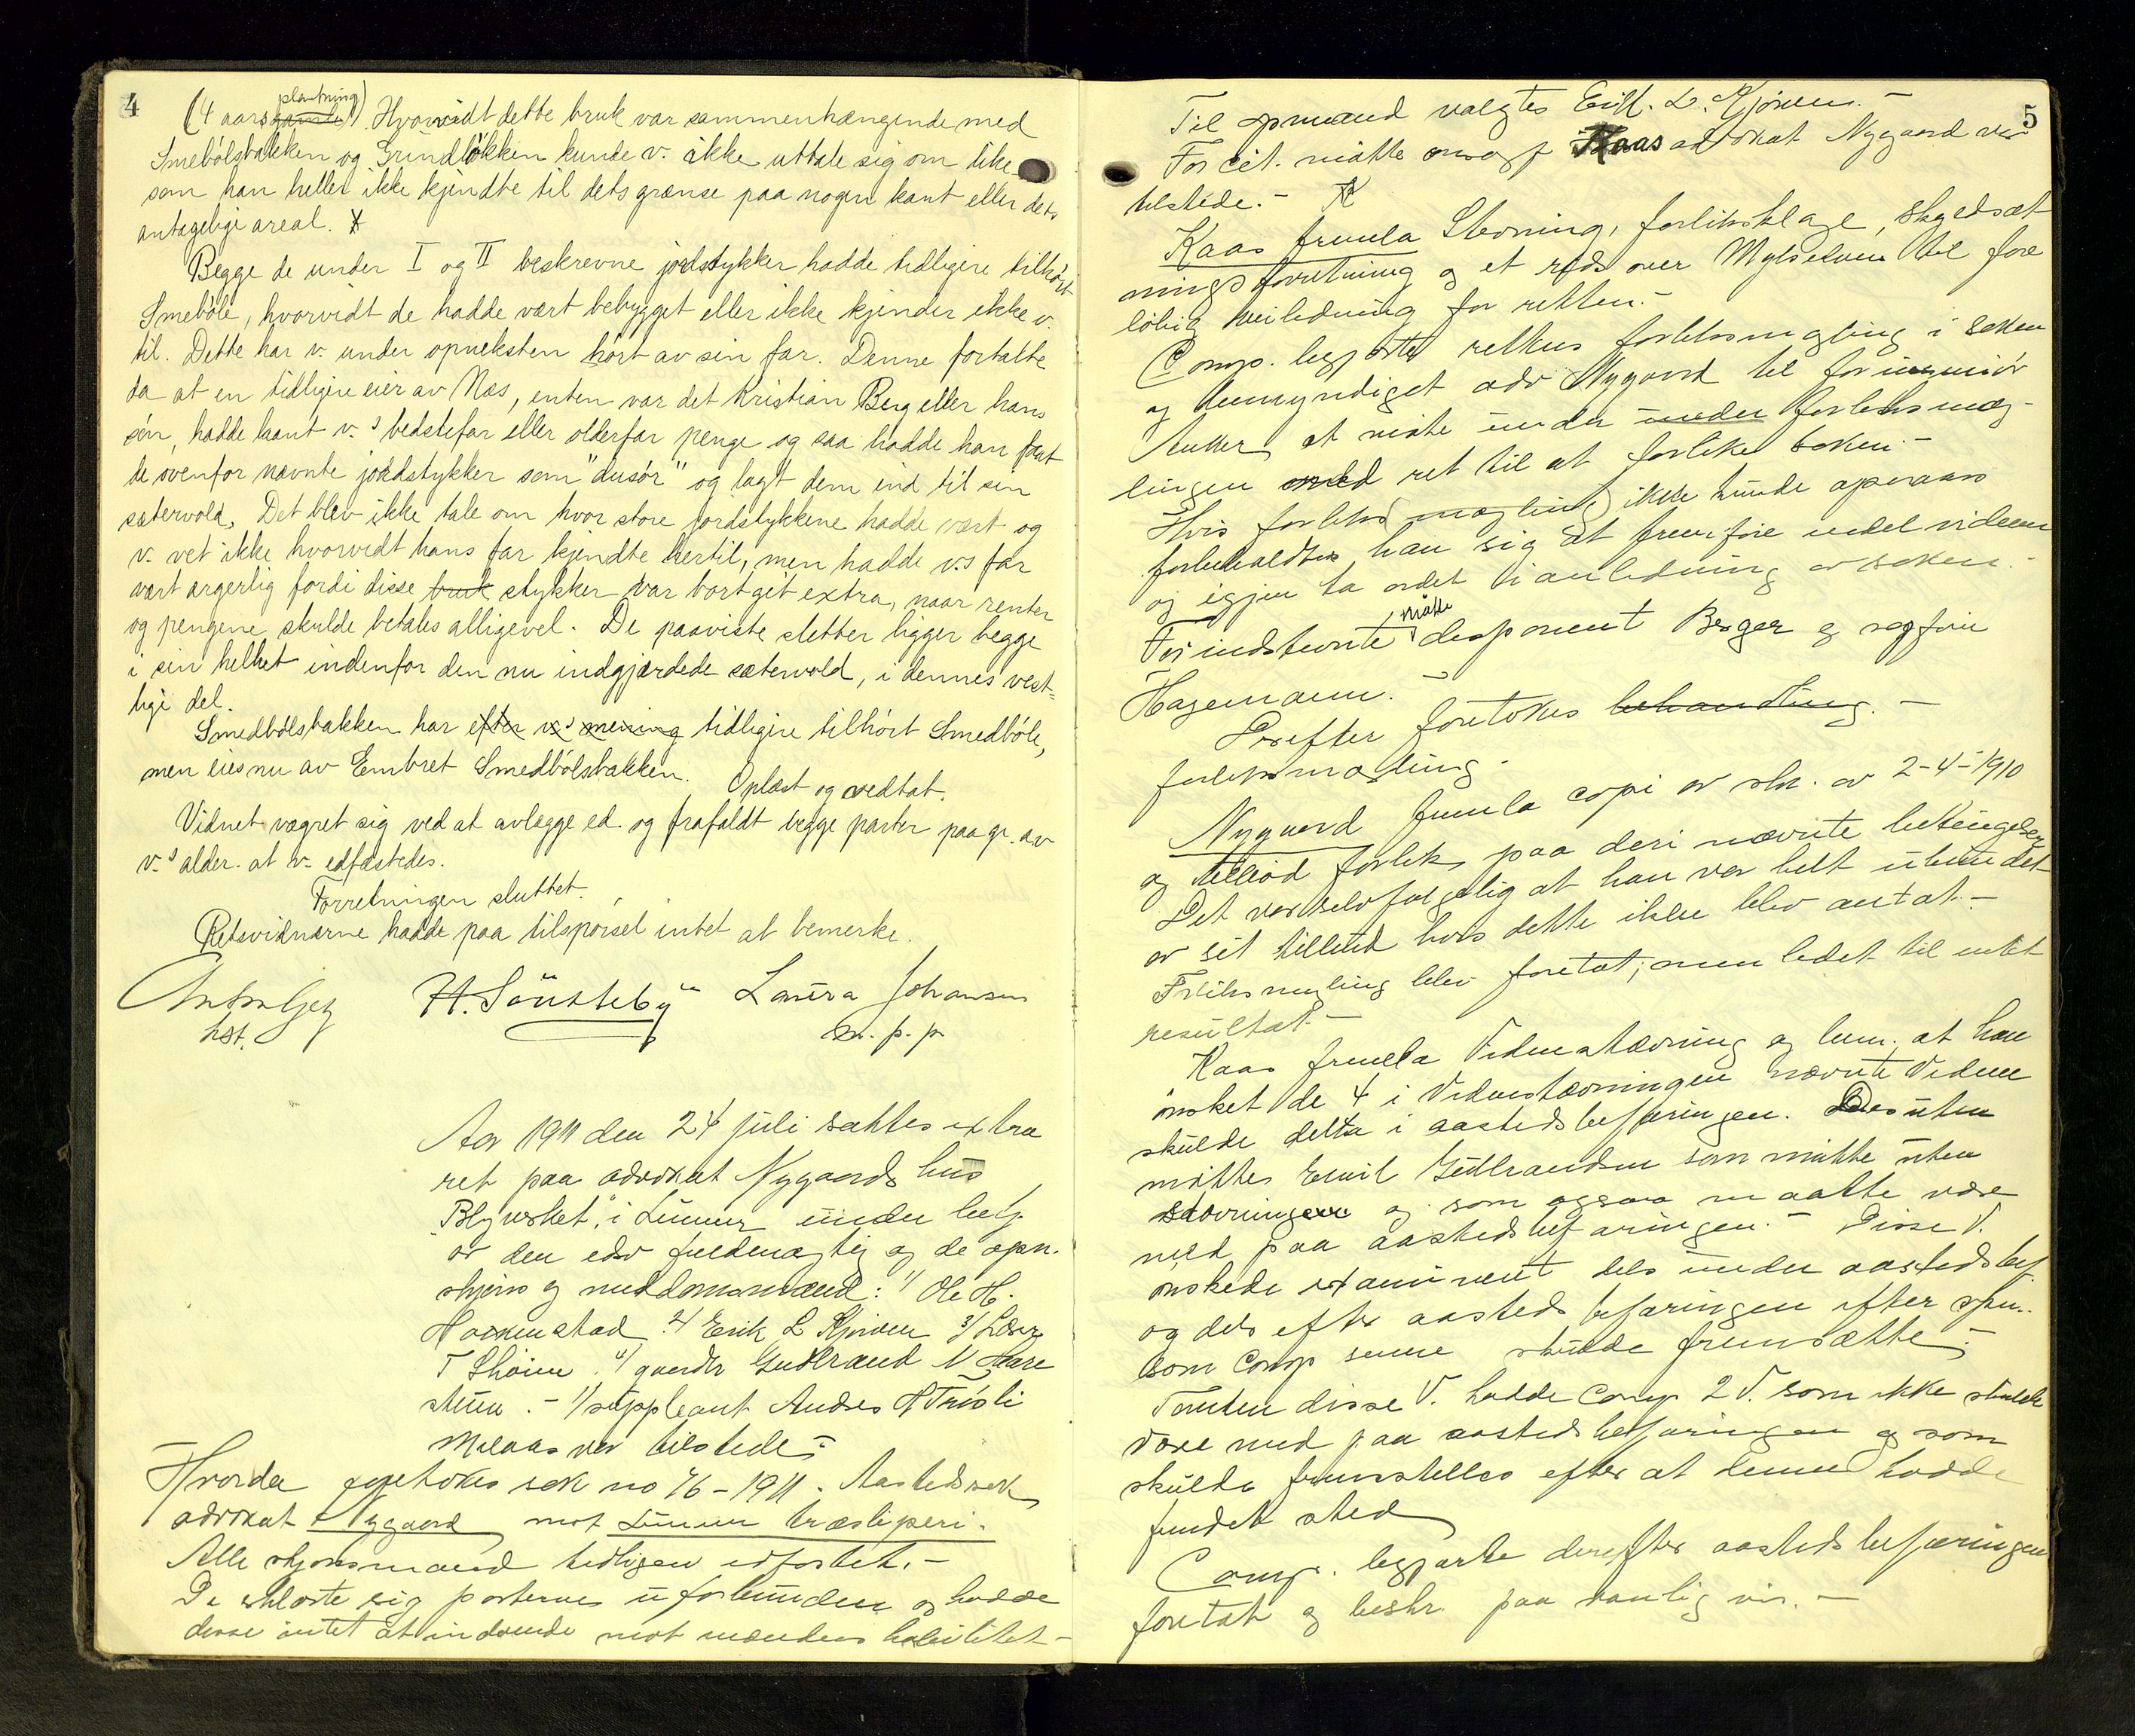 4
plantning)
(4 aars gamle). Hvorvidt dette bruk var sammenhængende med
Smebølsbakken og Grindløkken kunde v. ikke uttale sig om like
som han heller ikke kjendte til dets grænse paa nogen kant eller dets
antagelige areal.
Begge de under I og II beskrevne jordstykker hadde tidligere tilhørt
Smebøle, hvorvidt de hadde vært bebygget eller ikke kjender ikke v.
til. Dette har v. under opveksten hørt av sin far. Denne fortalte
da at en tidligere eier av Næs, enten var det Kristian Berg eller hans
søn, hadde laant v.s bedstefar eller olderfar penge og saa hadde han faat
de ovenfor nævnte jordstykker som "dusør" og lagt dem ind til sin
sætervold. Det blev ikke tale om hvor store jordstykkene hadde vært og
v. vet ikke hvorvidt hans far kjendte hertil, men hadde v.s far
vært ærgerlig fordi disse bruk stykker var bortgit extra, naar renter
og pengene skulde betales alligevel. De paaviste sletter ligger begge
i sin helhet indenfor den nu indgjærdede sætervold, i dennes vest=
lige del.
Smedbølsbakken har efter v.s mening tidligere tilhørt Smedbøle,
men eies nu av Embret Smedbølsbakken.
Oplæst og vedtat.
Vidnet vægret sig ved at avlægge ed og frafaldt begge parter paa gr. av
v.s alder at v. edfæstedes.
Forretningen sluttet.
Retsvidnerne hadde paa tilspørsel intet at bemerke.
H. Sønsteby Laura Johansen
hst. m. p. p.
Aar 1911 den 24 juli sattes extra
ret paa advokat Nygaards hus
i Lunner under
av den edsv fuldmægtig og de opn.
skjøns og meddomsmænd: 1/ Ole H.
2/ Erik L Kjørven 3/
4/ gaardbr Gudbrand N
1/ suppleant Andres
var tilstede:
Hvorda foretokes sak no 76-1911. Aastedssak
advokat Nygaard mot Lunner træsliperi.
Alle skjønsmænd tidligere edfæstet. -
De erklærte sig parterne uforbundne og hadde
disse intet at indvende mot mændenes habilitet -
5
Til opmand valgtes Erik L. Kjørven. -
For cit. møtte Kaas advokat Nygaard var
tilstede. -
Kaas fremla Stevning, forliksklage,
forretning og et rids over til fore
løbig veiledning for retten. -
Comp. begjærte rettens forliksmegling i saken
og bemyndiget adv Nygaard til
at møte under under forliksmæg-
lingen med ret til at forlike saken. -
Hvis forliks(mægling) ikke kunde opnaaes
forbeholdtes han sig at fremføre endel vidner
og igjen ta ordet i anledning av saken. -
møtte
For indstevnte disponent Berger og sagfører
Hagemann. -
Derefter foretokes behandling. -
forliksmægling.
Nygaard fremla copi av skr. av 2-4-1910
og tilbød forlik paa deri nævnte betingelser
Det var selvfølgelig at han var helt ubundet
av sit tilbud hvis dette ikke blev antat. -
Forliksmegling blev foretat, men ledet til intet
resultat. -
Kaas fremla Vidnestævning og bem. at han
ønsket de 4 i Vidnestævningen nævnte Vidner
skulde delta i aastedsbefaringen. Desuten
møttes Emil Gudbrandsen som møtte uten
stævningen og som ogsaa maatte være
med paa aastedsbefaringen. - Disse V.
ønskede examinert dels under aastedsbef
og dels efter aastedsbefaringen efter spm.
som Comp senere skulde fremsætte. -
Foruten disse V. hadde Comp 2 V. som ikke skulde
være med paa aastedsbefaringen og som
skulde fremstilles efter at denne hadde
fundet sted
Comp. begjærte derefter aastedsbefaringen
foretat og beskr. paa vanlig vis. -